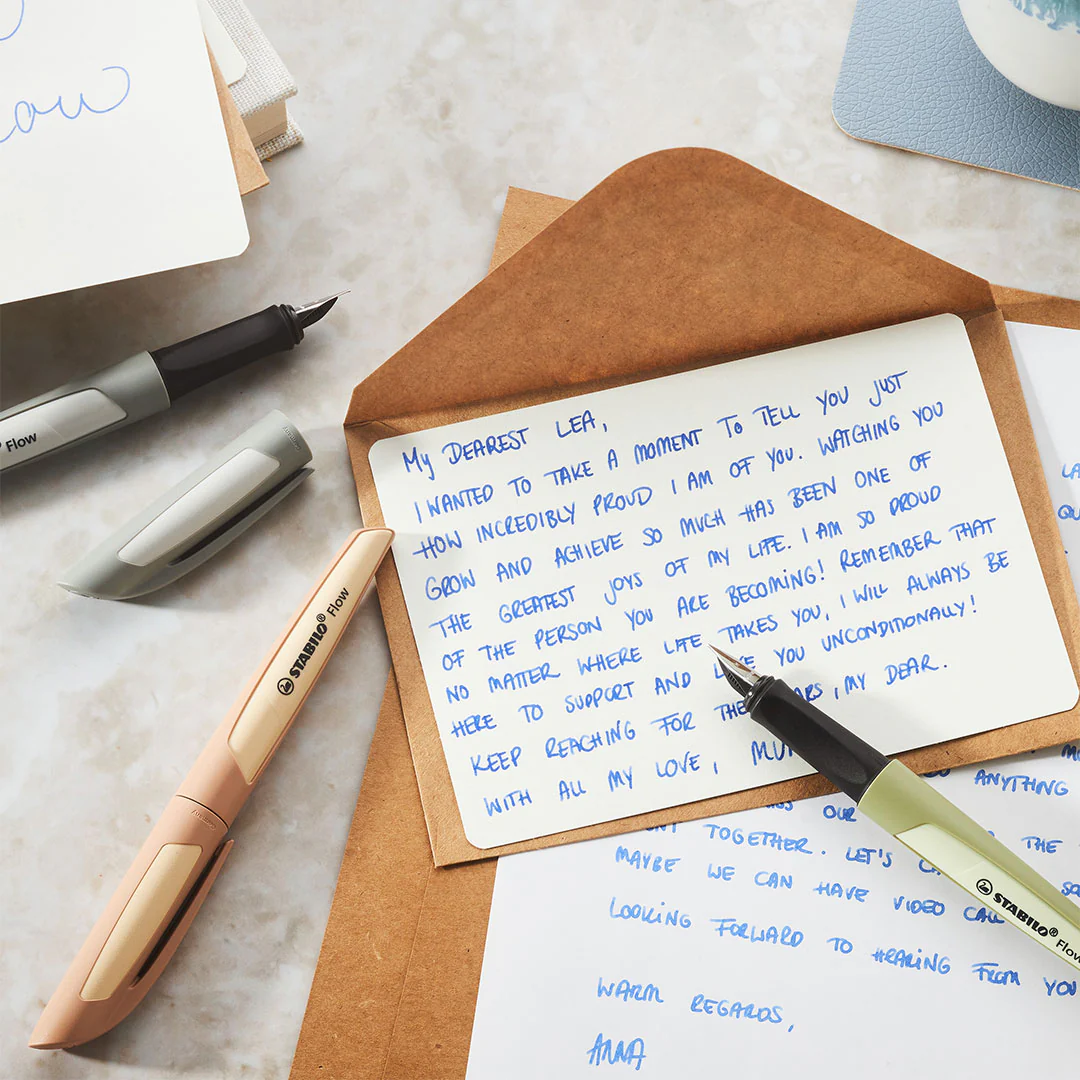 My DEAREST LEA,
I WANTED TO TAKE A MOMENT TO TELL YOU JUST
HOW INCREDIBLY PROUD I AM OF YOU. WATCHING YOU
GROW AND ACHIEVE SO MUCH HAS BEEN ONE OF
THE GREATEST JOYS OF MY LIFE. I AM SO PROUD
OF THE PERSON YOU ARE BECOMING! REMEMBER THAT
NO MATTER WHERE LIFE TAKES YOU, I WILL ALWAYS BE
HERE TO SUPPORT AND YOU UNCONDITIONALLY!
KEEP REACHING FOR , MY DEAR.
WITH ALL MY LOVE,
Flow
STABILO® Flow
STABILO® Flow
ANYTHING
OUR THE
TOGETHER. LET'S
MAYBE WE CAN HAVE VIDEO CALL
LOOKING FORWARD TO HEARING FROM YOU
WARM REGARDS,
ANNA